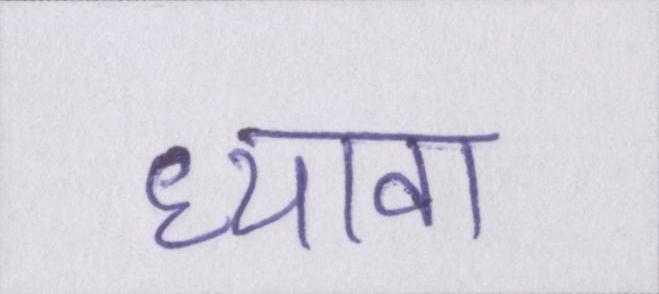 ध्यावा